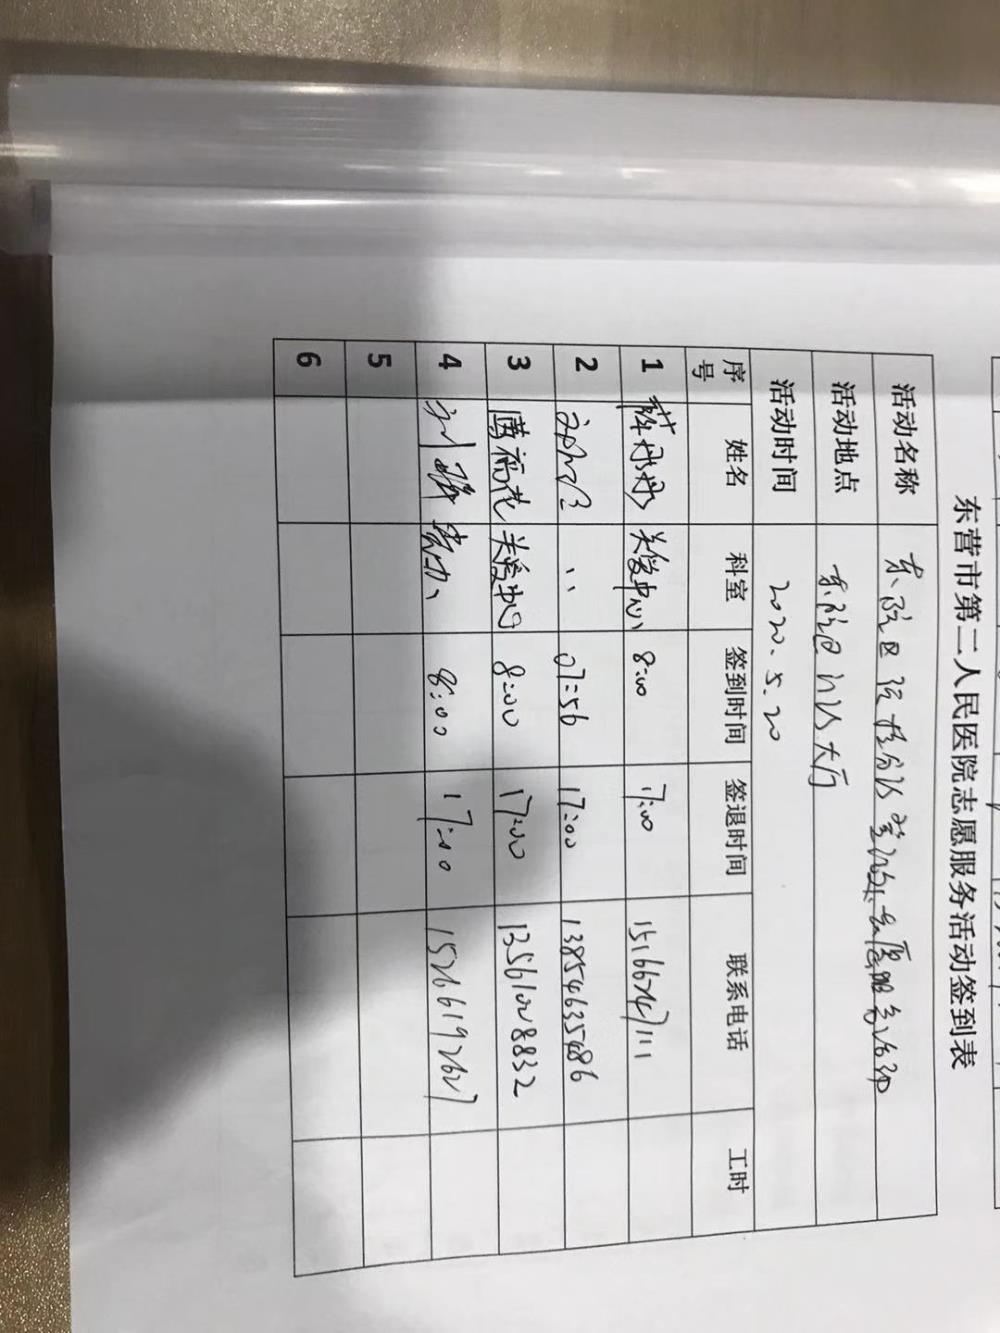 东营市第二人民医院志愿服务活动签到表
活动名称 东院区预检分诊 志愿服务活动
活动地点 东院区门诊大厅
活动时间 2020.5.20
序号 姓名 科室 签到时间 签退时间 联系电话 工时
1 薛丹丹 关爱中心 8:00 17:00 15166247111
2 、、 07:56 17:00 13854635486
3 福花 关爱中心 8:00 17:00 13561008832
4 刘 8:00 17:00 15266192627
5
6